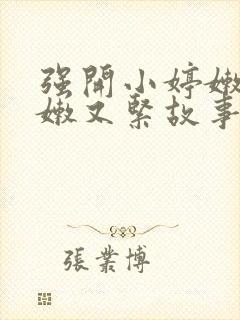 强開小婷嫩
嫩又緊故事
張業博